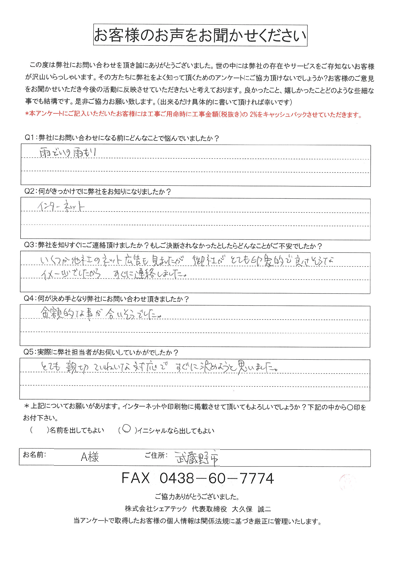 お客様のお声をお聞かせください
この度は弊社にお問い合わせを頂き誠にありがとうございました。世の中には弊社の存在やサービスをご存知ないお客様
が沢山いらっしゃいます。その方たちに弊社をよく知って頂くためのアンケートにご協力頂けないでしょうか?お客様のご意見
をお聞かせいただき今後の活動に反映させていただきたいと考えております。良かったこと、嬉しかったことどのような些細な
事でも結構です。是非ご協力お願い致します。(出来るだけ具体的に書いて頂ければ幸いです)
*本アンケートにご記入いただいたお客様には工事ご用命時に工事金額(税抜き)の 2%をキャッシュバックさせていただきます。
Q1:弊社にお問い合わせになる前にどんなことで悩んでいましたか?
雨どいの雨もり
Q2:何がきっかけでに弊社をお知りになりましたか?
インターネット
Q3:弊社を知りすぐにご連絡頂けましたか?もしご決断されなかったとしたらどんなことがご不安でしたか?
いくつか他社のネット広告も見ましたが 御社が とても印象的で良さそうな
イメージでしたから すぐに連絡しました。
Q4:何が決め手となり弊社にお問い合わせ頂きましたか?
金額的な事が合いそうでした。
Q5:実際に弊社担当者がお伺いしていかがでしたか?
とても 親切 ていねいな対応で すぐに決めようと思いました。
*上記についてお願いがあります。インターネットや印刷物に掲載させて頂いてもよろしいでしょうか?下記の中から○印を
お付下さい。
( )名前を出してもよい (○)イニシャルなら出してもよい
お名前: A様 ご住所: 武蔵野市
FAX 0438-60-7774
ご協力ありがとうございました。
株式会社シェアテック 代表取締役 大久保 誠二
当アンケートで取得したお客様の個人情報は関係法規に基づき厳正に管理いたします。